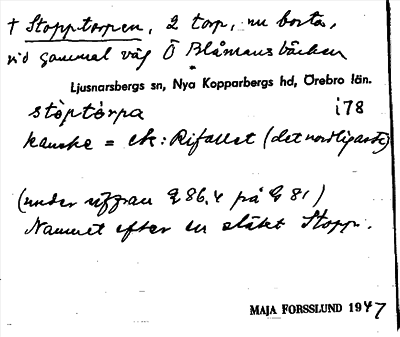 † Stopptorpen, 2 torp, nu borta,
vid gammal väg Ö Blåmansbäcken
Ljusnarsbergs sn, Nya Kopparbergs hd, Örebro län.
stòptórpa i78
kanske = ek: Rifallet (det nordligaste)
(under siffran 86.4 på 81)
Namnet efter en släkt Stopp.
MAJA FORSSLUND 1947